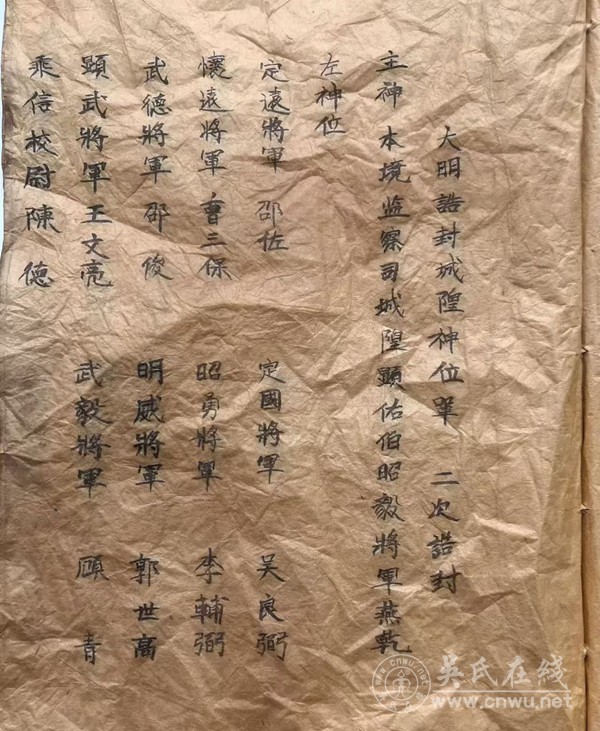 大明誥封城隍神位單 二次誥封
主神 本境监察司城隍顯佑伯昭毅將軍燕乾
左神位
定遠將軍 邵佐 定國將軍 吴良弼
懷遠將軍 曹三保 昭勇將軍 李輔弼
武德將軍 邵俊 明威將軍 郭世高
顕武將軍王文亮 武毅將軍 顾青
乘信校尉陳德
吴氏在线
www.cnwu.net